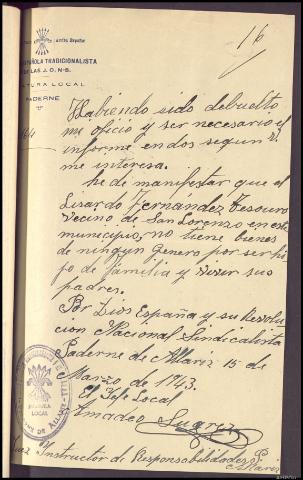 16
¡Arriba España!
ESPAÑOLA TRADICIONALISTA
DE LAS J. O. N-S.
JEFATURA LOCAL
PADERNE
Habiendo sido debuelto
me oficio y ser necesario el
informe en dos segun V.
me interesa.
he de manifestar que el
Lisardo Fernández Tesouro
vecino de San Lorenzo en este
municipio, no tiene bienes
de ningún genero por ser hi-
jo de familia y vivir sus
padres.
Por Dios España y su Revolu
cion Nacional Sindicalista
Paderne de Allariz 15 de
Marzo de 1943.
El Jefe Local
Amadeo Suarez
Juez Instructor de Responsabilidades P.
Allariz
JEFATURA
LOCAL